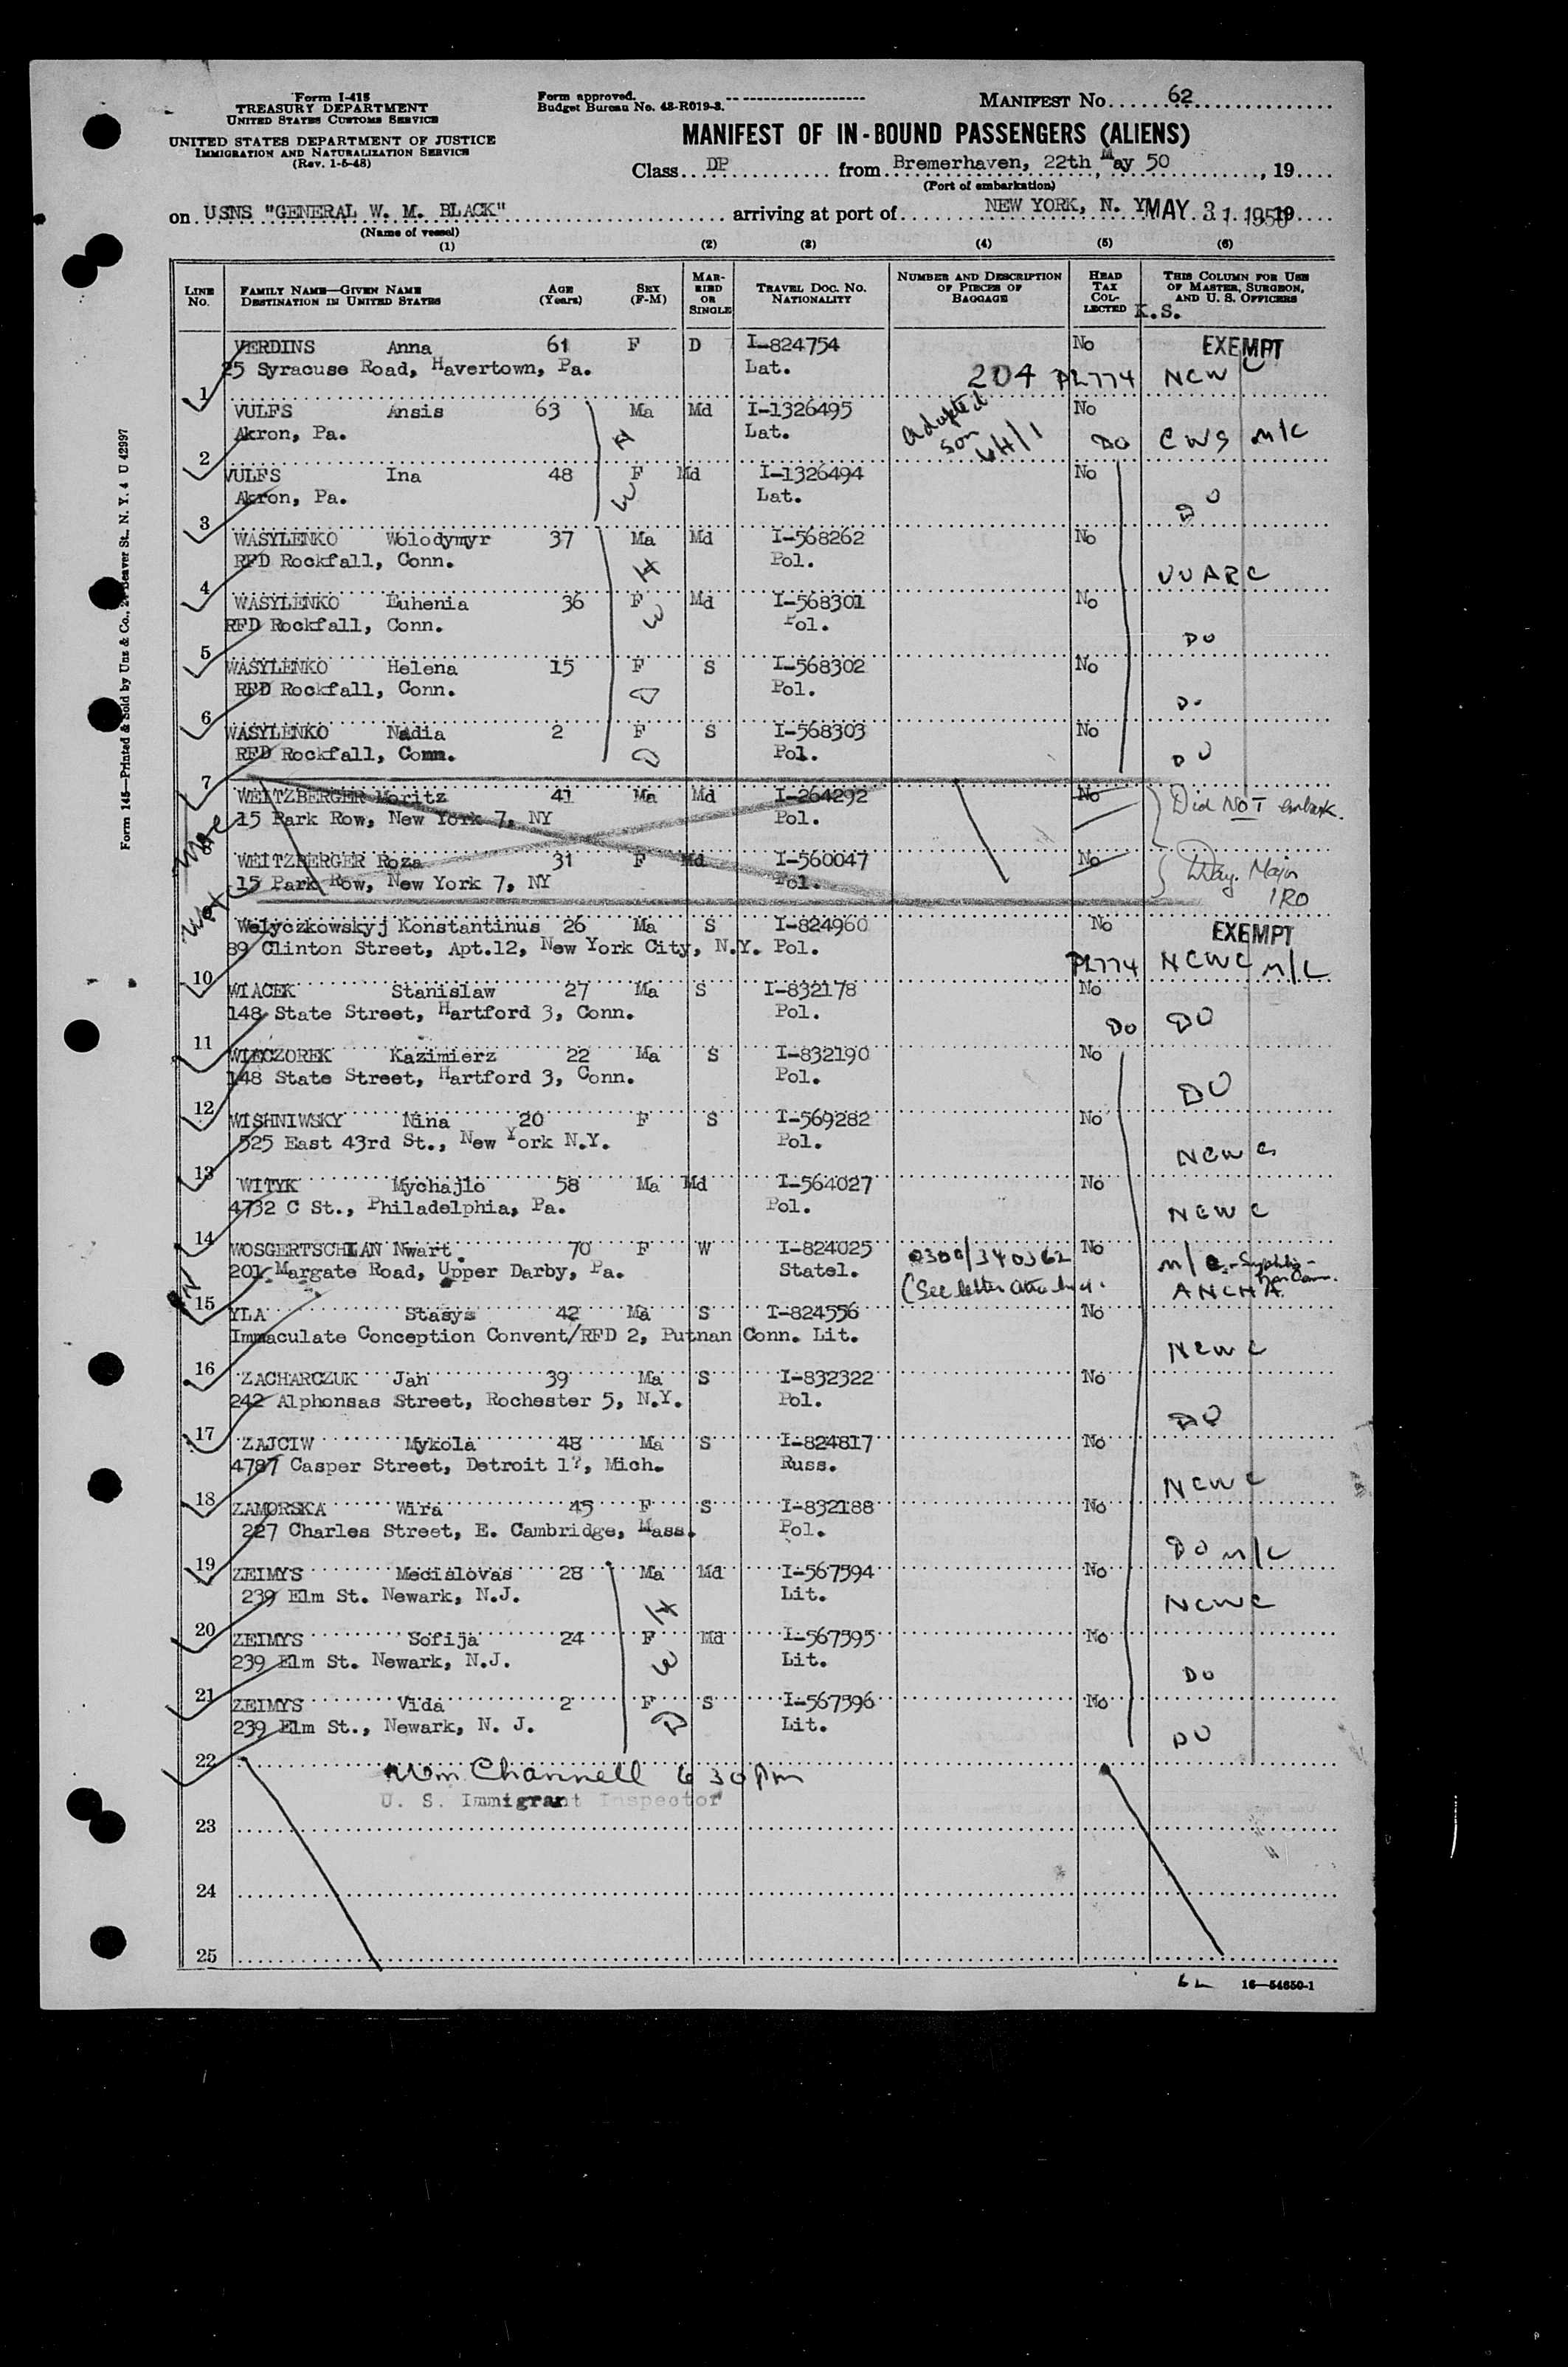 Form I-415
TREASURY DEPARTMENT
UNITED STATES CUSTOMS SERVICE
UNITED STATES DEPARTMENT OF JUSTICE
IMMIGRATION AND NATURALIZATION SERVICE
(Rev. 1-5-48)
Form approved.
Budget Bureau No. 43-R019-3.
MANIFEST No. 62
MANIFEST OF IN-BOUND PASSENGERS (ALIENS)
Class DP from Bremerhaven, 22th May 50, 19
(Port of embarkation)
on USNS "GENERAL W. M. BLACK" arriving at port of NEW YORK, N. Y. MAY 31 1950, 19
(Name of vessel)
(1) (2) (3) (4) (5) (6)
LINE No.
FAMILY NAME—GIVEN NAME
DESTINATION IN UNITED STATES
AGE (Years)
SEX (F-M)
MARRIED OR SINGLE
TRAVEL DOC. NO.
NATIONALITY
NUMBER AND DESCRIPTION OF PIECES OF BAGGAGE
HEAD TAX COLLECTED
THIS COLUMN FOR USE OF MASTER, SURGEON, AND U. S. OFFICERS
K.S.
VERDINS Anna 61 F D I-824754 No EXEMPT
25 Syracuse Road, Havertown, Pa. Lat. 204 PL774 NCWC
1
VULFS Ansis 63 Ma Md I-1326495 Adopted son No
Akron, Pa. H Lat. Do CWS M/C
2
VULFS Ina 48 F Md I-1326494 No
Akron, Pa. W Lat. DO
3
WASYLENKO Wolodymyr 37 Ma Md I-568262 No
RFD Rockfall, Conn. H Pol. UUARC
4
WASYLENKO Euhenia 36 F Md I-568301 No
RFD Rockfall, Conn. W Pol. DO
5
WASYLENKO Helena 15 F S I-568302 No
RFD Rockfall, Conn. D Pol. Do
6
WASYLENKO Nadia 2 F S I-568303 No
RFD Rockfall, Conn. D Pol. DO
7
WEITZBERGER Moritz 41 Ma Md I-264292 No Did NOT embark.
15 Park Row, New York 7, NY Pol.
8
WEITZBERGER Roza 31 F Md I-560047 No
15 Park Row, New York 7, NY Pol. Major IRO
Welyczkowskyj Konstantinus 26 Ma S I-824960 No EXEMPT
89 Clinton Street, Apt.12, New York City, N.Y. Pol. PL774 NCWC M/C
10
WIACEK Stanislaw 27 Ma S I-832178 No
148 State Street, Hartford 3, Conn. Pol. Do DO
11
WIECZOREK Kazimierz 22 Ma S I-832190 No
148 State Street, Hartford 3, Conn. Pol. DO
12
WISHNIWSKY Nina 20 F S I-569282 No
525 East 43rd St., New York N.Y. Pol. NCWC
13
WITYK Mychajlo 58 Ma Md I-564027 No
4732 C St., Philadelphia, Pa. Pol. NCWC
14
WOSGERTSCHIAN Nwart 70 F W I-824025 0300/340362 No M/C - Syphilis -
201 Margate Road, Upper Darby, Pa. Statel. (See letter attached. ANCHA
15
YLA Stasys 42 Ma S I-824556 No
Immaculate Conception Convent/RFD 2, Putnan Conn. Lit. NCWC
16
ZACHARCZUK Jan 39 Ma S I-832322 No
242 Alphonsas Street, Rochester 5, N.Y. Pol. DO
17
ZAJCIW Mykola 48 Ma S I-824817 No
4787 Casper Street, Detroit 1?, Mich. Russ. NCWC
18
ZAMORSKA Wira 45 F S I-832188 No
227 Charles Street, E. Cambridge, Mass. Pol. DO M/C
19
ZEIMYS Mecislovas 28 Ma Md I-567594 No
239 Elm St. Newark, N.J. H Lit. NCWC
20
ZEIMYS Sofija 24 F Md I-567595 No
239 Elm St. Newark, N.J. W Lit. DO
21
ZEIMYS Vida 2 F S I-567596 No
239 Elm St., Newark, N. J. D Lit. DO
22
Wm Channell 6 30 pm
U. S. Immigrant Inspector
23
24
25
62 16—54650-1
Form 145—Printed & Sold by Unz & Co., 24 Beaver St., N. Y. 4 U 42997